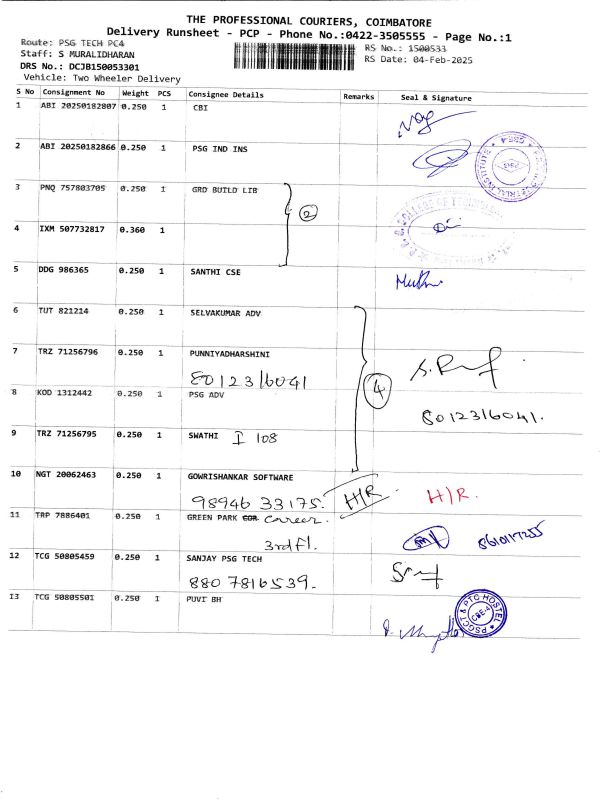 THE PROFESSIONAL COURIERS, COIMBATORE
Delivery Runsheet - PCP - Phone No.:0422-3505555 - Page No.:1
Route: PSG TECH PC4
RS No.: 1500533
Staff: S MURALIDHARAN
RS Date: 04-Feb-2025
DRS No.: DCJB150053301
Vehicle: Two Wheeler Delivery
S No Consignment No Weight PCS Consignee Details Remarks Seal & Signature
1 ABI 20250182807 0.250 1 CBI
2 ABI 20250182866 0.250 1 PSG IND INS
3 PNQ 757803705 0.250 1 GRD BUILD LIB
2
4 IXM 507732817 0.360 1
5 DDG 986365 0.250 1 SANTHI CSE
6 TUT 821214 0.250 1 SELVAKUMAR ADV
7 TRZ 71256796 0.250 1 PUNNIYADHARSHINI
8012316041
4
8 KOD 1312442 0.250 1 PSG ADV
8012316041.
9 TRZ 71256795 0.250 1 SWATHI I 108
10 NGT 20062463 0.250 1 GOWRISHANKAR SOFTWARE
98946 33175. H/R H/R.
11 TRP 7886401 0.250 1 GREEN PARK COR Career.
3rd fl. 8610117255
12 TCG 50805459 0.250 1 SANJAY PSG TECH
880 7816539.
13 TCG 50805501 0.250 1 PUVI BH
PSGCT & PTC HOSTEL
CBE-4